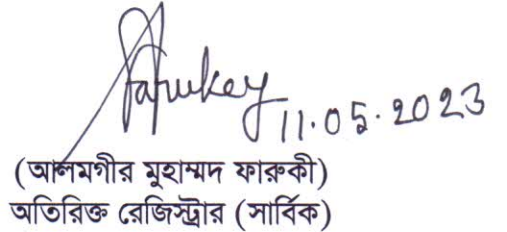 Farukey
11.05.2023
(আলমগীর মুহাম্মদ ফারুকী)
অতিরিক্ত রেজিস্ট্রার (সার্বিক)